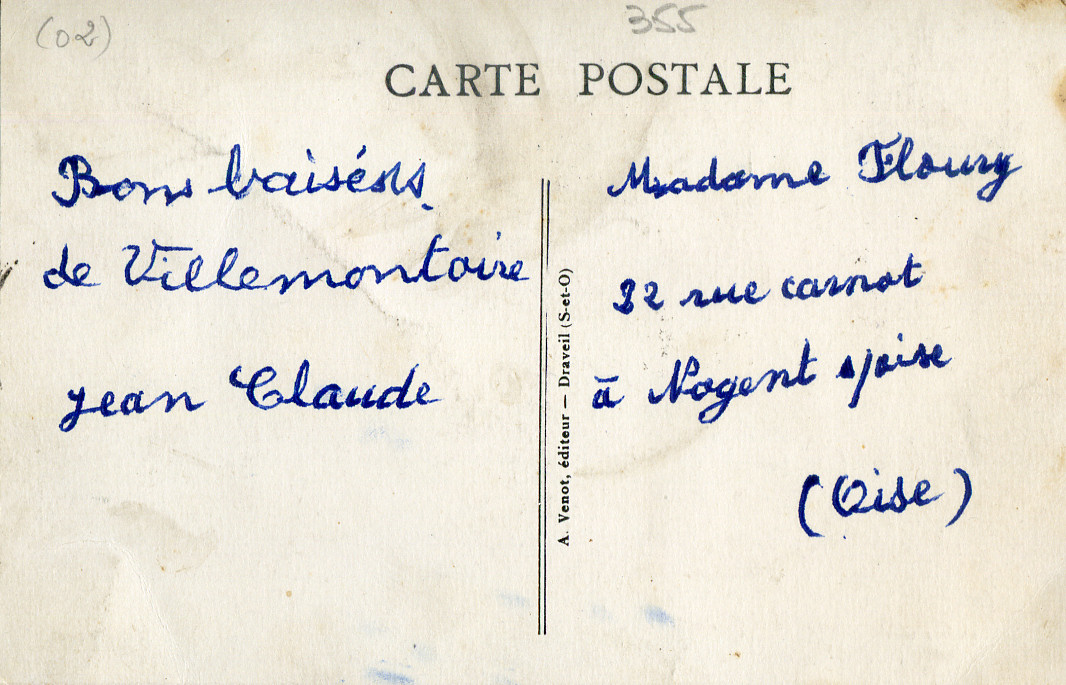 (02)
355
CARTE POSTALE
Bons baisérs
de Villemontoire
jean Claude
A. Venot, éditeur — Draveil (S-et-O)
Madame Floury
32 rue carnot
à Nogent s/oise
(Oise)